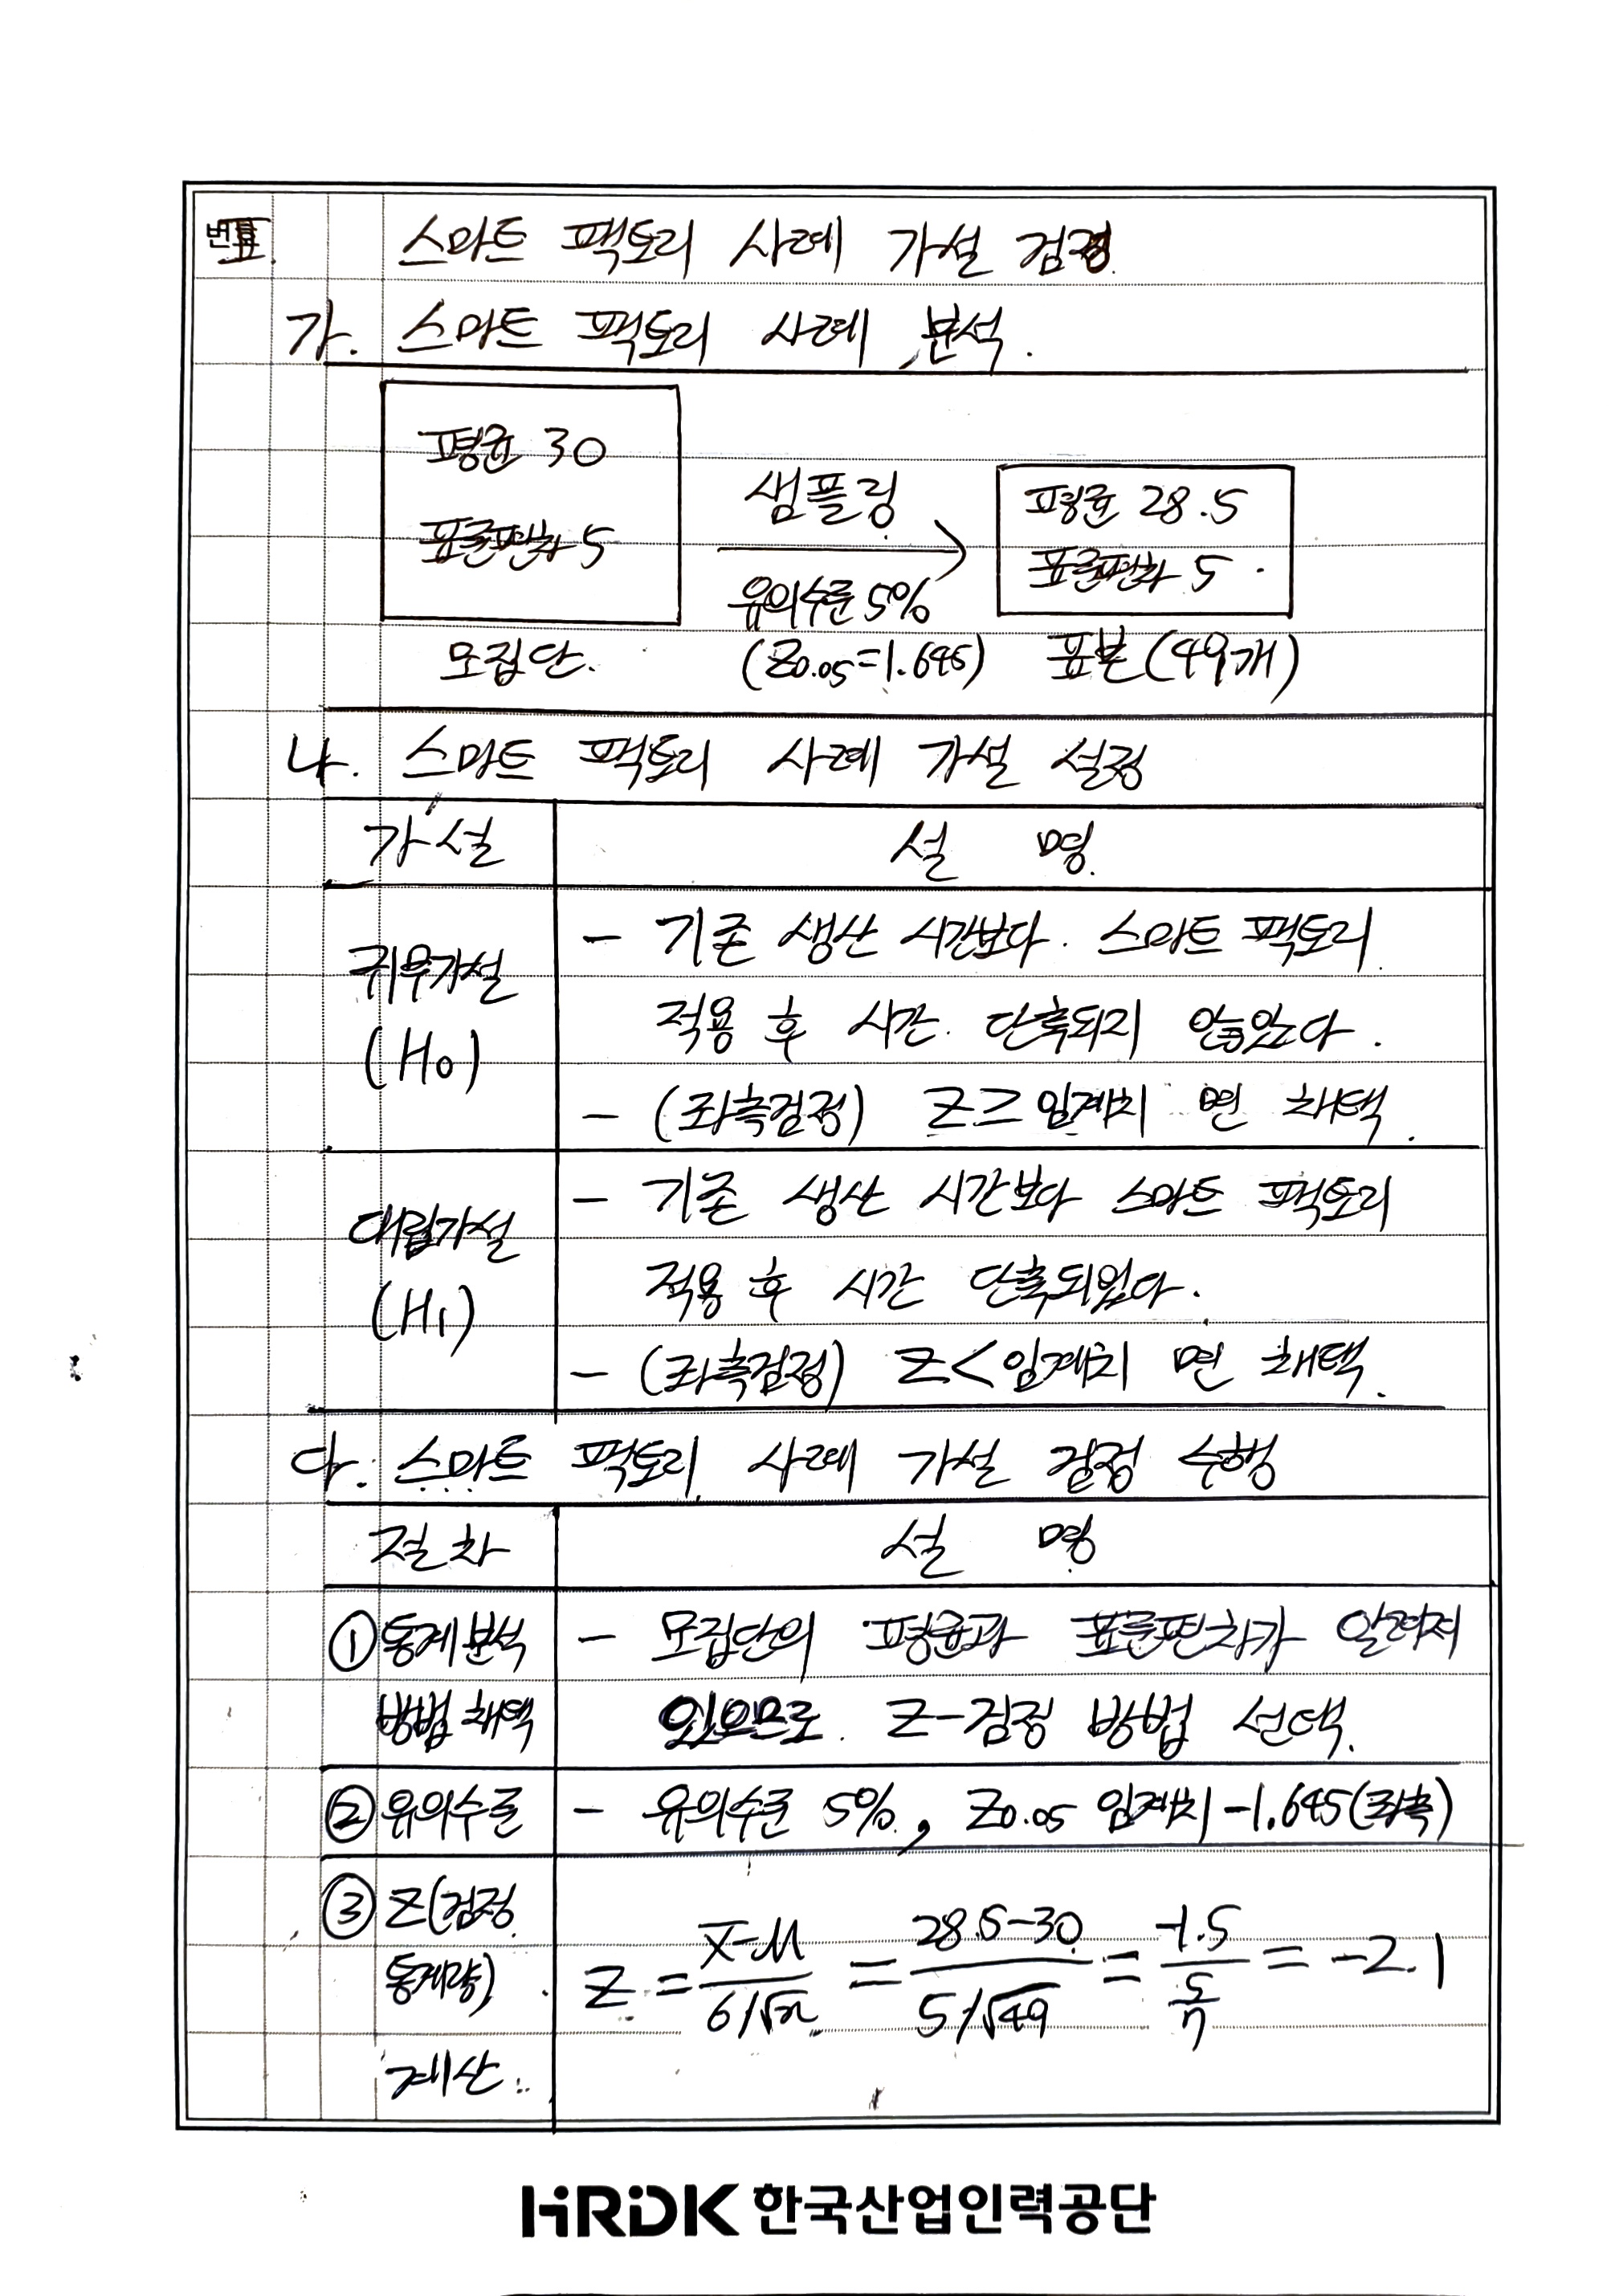 번호 Ⅲ. 스마트 팩토리 사례 가설 검정.
가. 스마트 팩토리 사례 분석.
평균 30
표준편차 5
모집단.
샘플링
유의수준 5%
(Z0.05=1.645)
평균 28.5
표준편차 5
표본(49개)
나. 스마트 팩토리 사례 가설 설정
가설 설 명.
귀무가설
(H0)
- 기존 생산 시간보다. 스마트 팩토리
적용 후 시간. 단축되지 않았다.
- (좌측검정) Z≥임계치 면 채택.
대립가설
(H1)
- 기존 생산 시간보다 스마트 팩토리
적용 후 시간 단축되었다.
- (좌측검정) Z<임계치 면 채택.
다. 스마트 팩토리 사례 가설 검정 수행
절차 설 명
① 통계분석
방법 채택
- 모집단의 평균과 표준편차가 알려져
있으므로. Z-검정 방법 선택.
② 유의수준 - 유의수준 5%, Z0.05 임계치-1.645(좌측)
③ Z(검정
통계량)
계산.
Z = X̄-μ / σ/√n = 28.5-30 / 5/√49 = -1.5 / 5/7 = -2.1
HRDK 한국산업인력공단